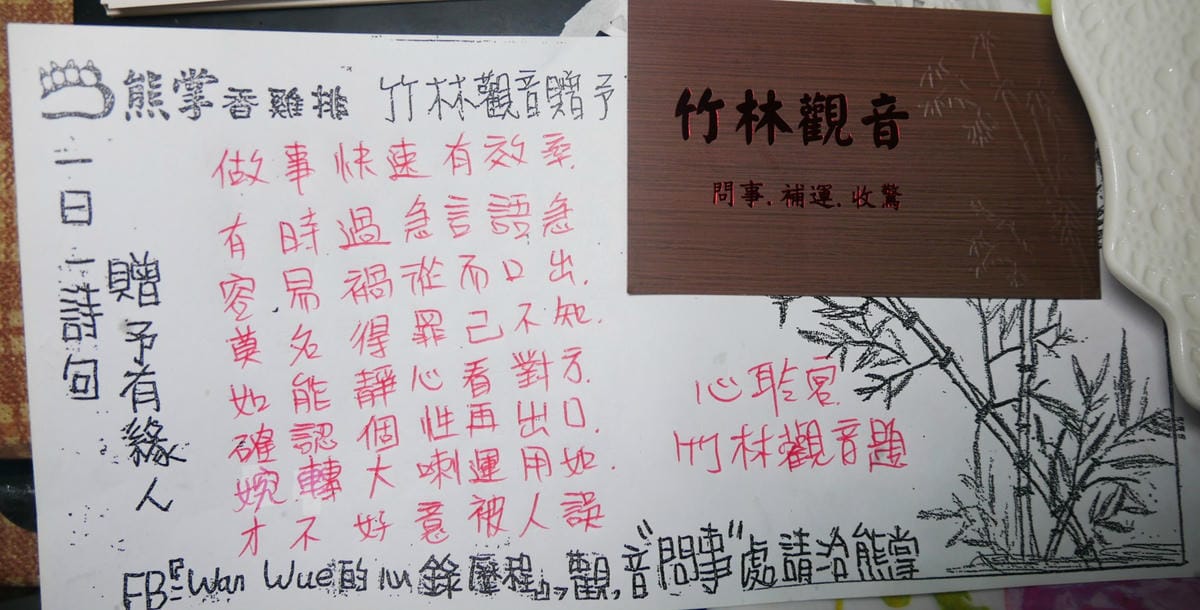 熊掌香雞排 竹林觀音贈予
一日一詩句
贈予有緣人
做事快速有效率.
有時過急言語急
容易禍從而口出.
莫名得罪己不知.
如能靜心看對方.
確認個性再出口.
婉轉大喇運用如.
才不好意被人誤
心聆宮
竹林觀音題
FB『Wan Wue的心錄歷程』,觀,音"問事"處請洽熊掌
竹林觀音
問事.補運.收驚